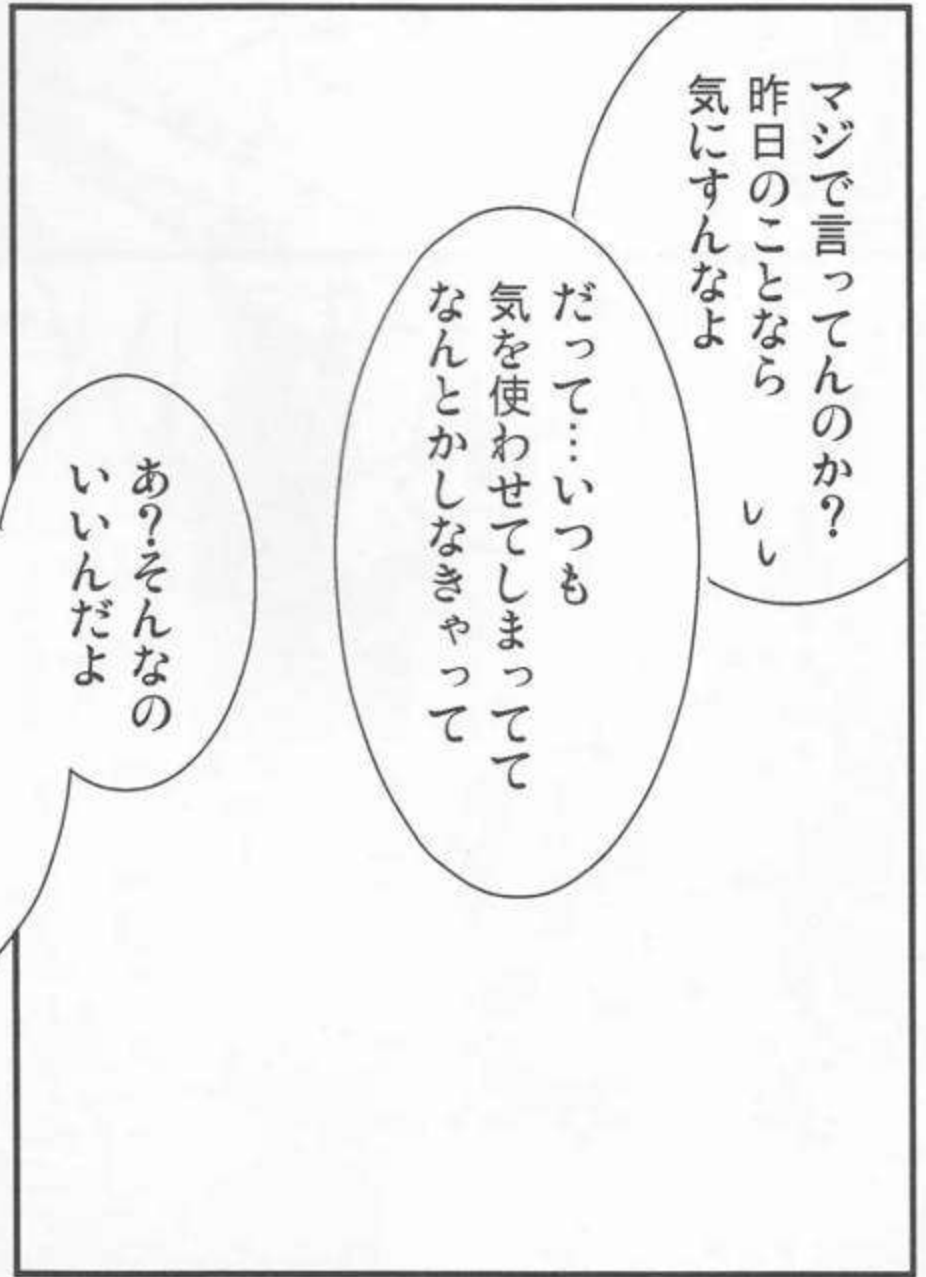 マジで言ってんのか?
昨日のことなら
気にすんなよ
だって…いつも
気を使わせてしまってて
なんとかしなきゃって
あ?そんなの
いいんだよ